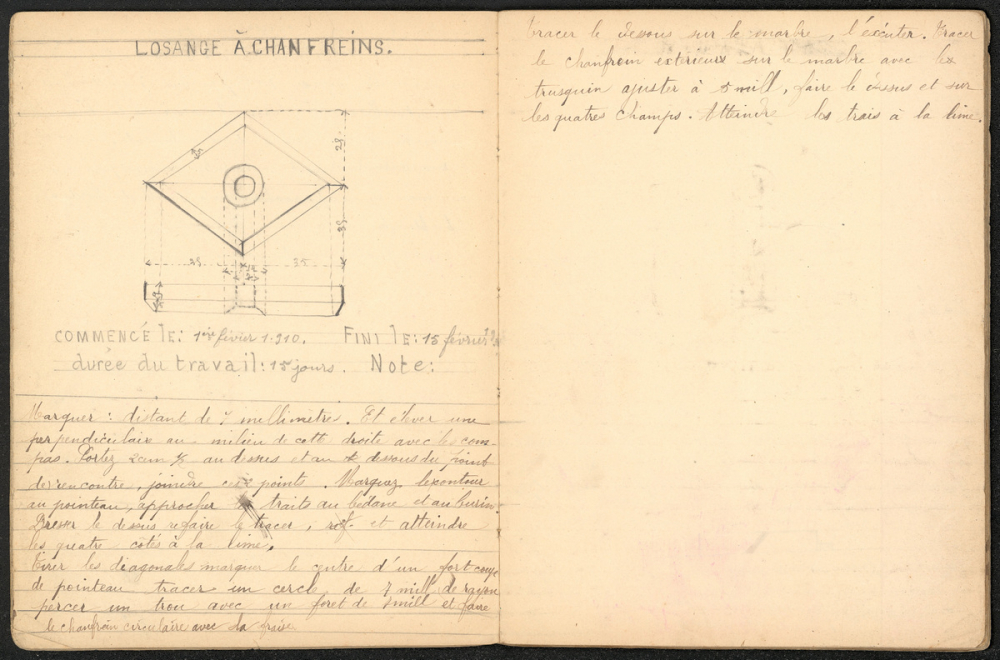 LOSANGE À CHANFREINS.
35
28
35
35
COMMENCÉ le: 1er févier 1.910. FINI lE: 15 février
durée du travail: 15 jours. Note:
Marquer: distant de 7 millimètres. Et élever une
perpendiculaire au milieu de cette droite avec le com-
pas. Portez 2cm ½ au dessus et au dessous du point
de rencontre, joindre ces points. Marquez le contour
au pointeau, approcher traits au bédane et au burin
le dessus refaire le tracer, et atteindre
les quatre côtés à la lime.
tirer les diagonales marquer le centre d'un fort coup
de pointeau tracer un cercle de 7 mill de rayon
percer un trou avec un foret de mill et faire
le chanfrein circulaire avec la fraise
tracer le dessous sur le marbre, l'éxécuter. Tracer
le chanfrein exterieur sur le marbre avec le
trusquin ajuster à 5 mill, faire le dessus et sur
les quatres champs. Atteindre les trais à la lime.